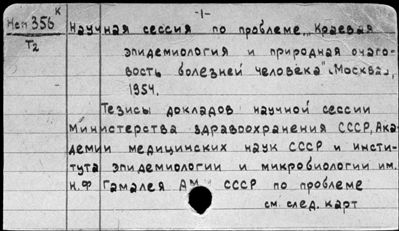 -1-
Неп 356 К
Т2
Научная сессия по проблеме „Краевая
эпидемиология и природная очаго-
вость болезней человека" „Москва„,
1954.
Тезисы докладов научной сессии
Министерства здравоохранения СССР, Ака-
демии медицинских наук СССР и инсти-
тута эпидемиологии и микробиологии им.
Н.Ф Гамалея АМ СССР по проблеме
см. след. карт